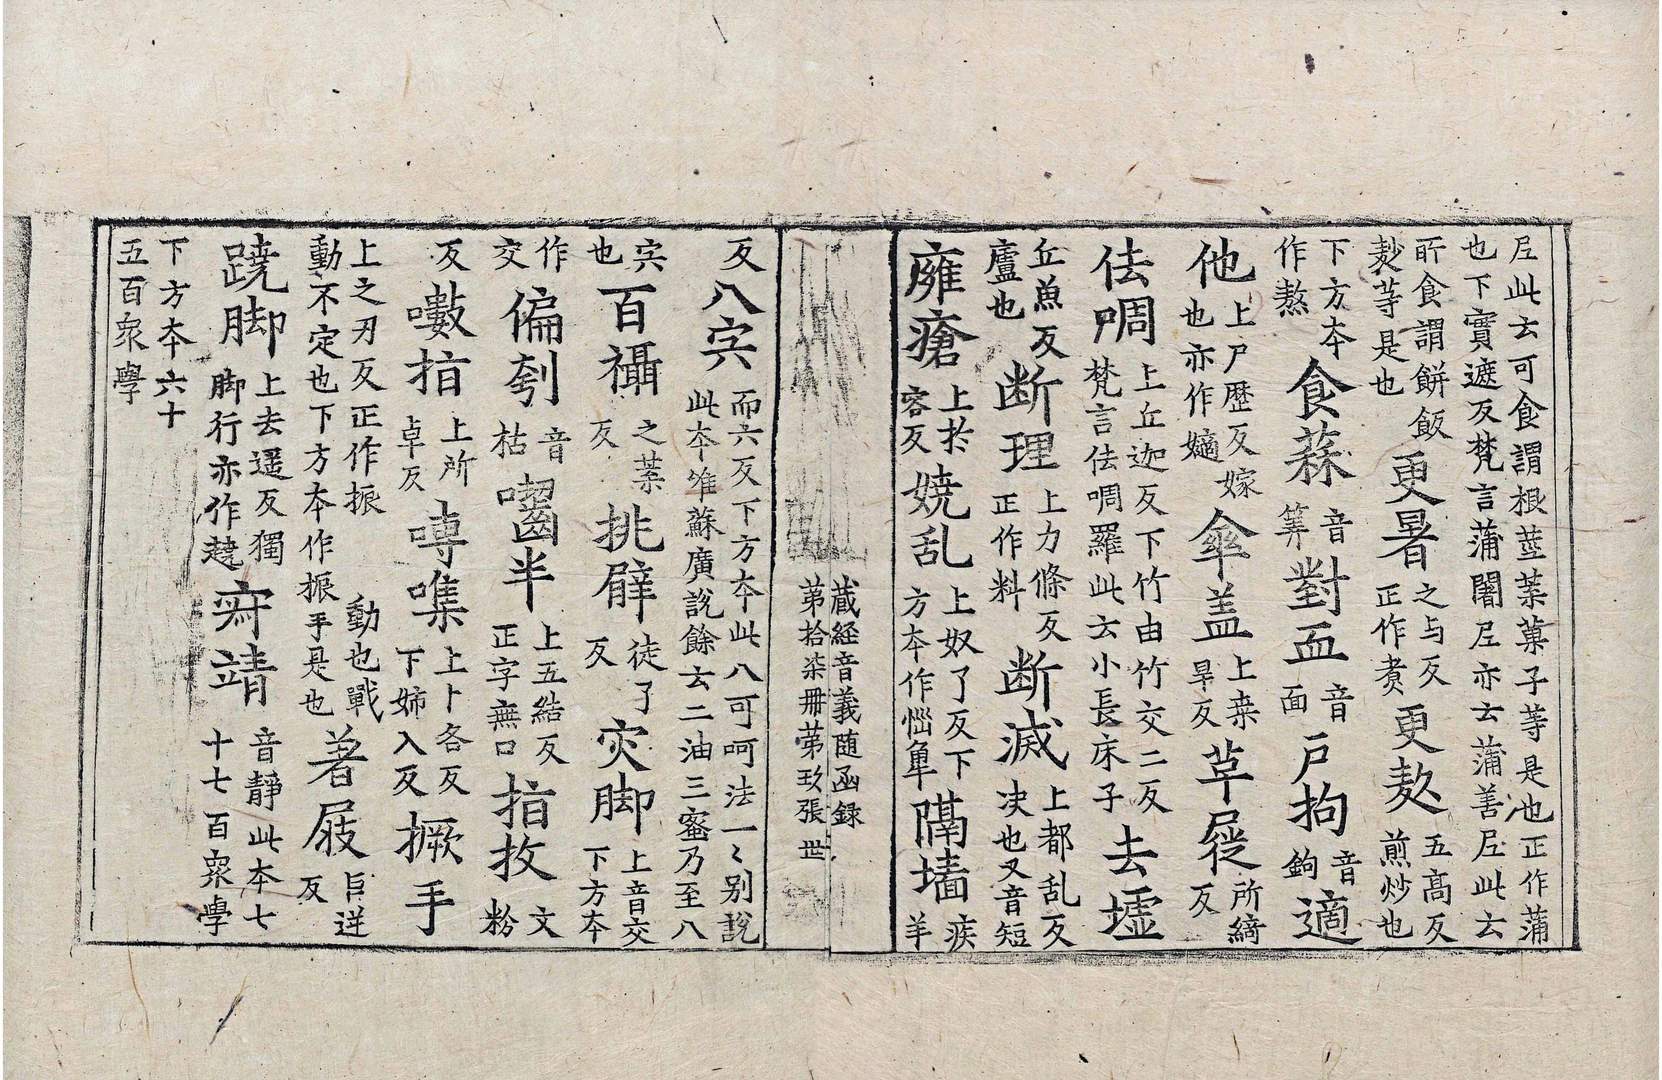 尼此云可食謂根莖菜菓子等是也正作蒲
也下實遮反梵言蒲闍尼亦云蒲善尼此云
所食謂餅飯
麨等是也
更暑
之与反
正作煑
更熬
五髙反
煎炒也
下方夲
作熬
食蒜
音
筭
對面
音
面
户拘
音
鉤
適
他
上尸歷反嫁
也亦作嫡
傘盖
上桒
旱反
草屣
所綺
反
佉啁
上丘迦反下竹由竹交二反
梵言佉啁羅此云小長床子
去墟
丘魚反
廬也
断理
上力條反
正作料
断滅
上都乱反
决也又音短
癰瘡
上扵
容反
嬈乱
上奴了反下
方夲作惱
隔墻
疾
羊
蔵経音義随函録
第拾柒冊第玖張 世
反八宍
而六反下方夲此八可呵法一〻别說
此夲唯蘇廣說餘云二油三蜜乃至八
宍
也
百襵
之葉
反
挑臂
徒了
反
灾脚
上音交
下方夲
作
交
偏刳
音
枯
囓半
上五結反
正字無口
揩抆
文
粉
反
嗽指
上所
卓反
噂噍
上卜各反
下姉入反
撅手
上之刃反正作振
動也戰
動不定也下方夲作振手是也
著屐
巨逆
反
蹺脚
上去遥反獨
脚行亦作趬
靖
音靜此夲七
十七百衆學
下方夲六十
五百衆學